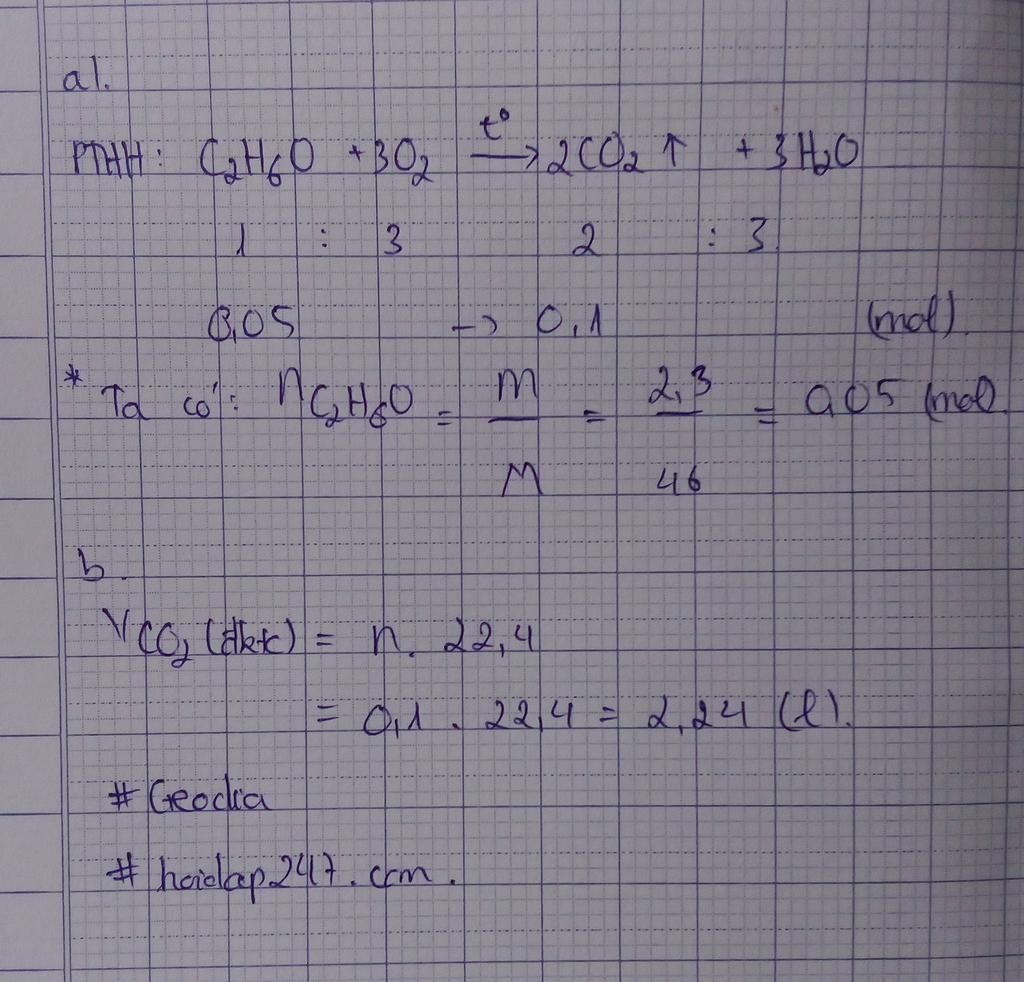 a).
PTHH: C₂H₆O + 3O₂ t° → 2CO₂ ↑ + 3H₂O
1 : 3 2 : 3
0,05 → 0,1 (mol).
* Ta có: nC₂H₆O = m/M = 2,3/46 = 0,05 (mol)
b.
VCO₂ (đktc) = n. 22,4
= 0,1 . 22,4 = 2,24 (l).
# Geodia
# hoidap247.com.